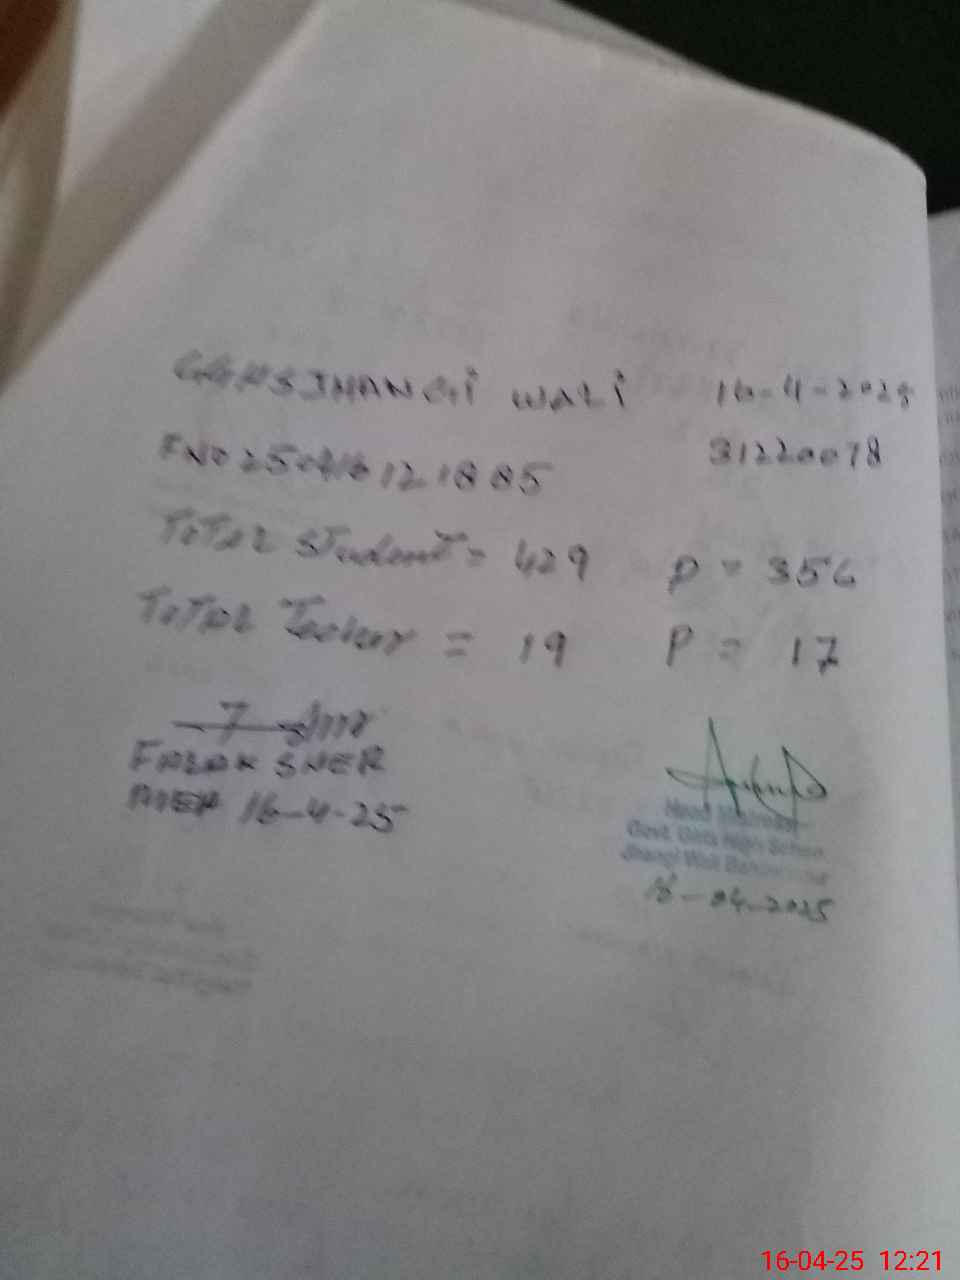 GGHS JHANGI WALI 16-4-2025
FNO 250416121885 31220078
TOTAL Student = 429 P = 356
TOTAL Techer = 19 P = 17
FALAK SHER
MEA 16-4-25
Head Mistress
Govt. Girls High School
Jhangi Wali
16-04-2025
16-04-25 12:21